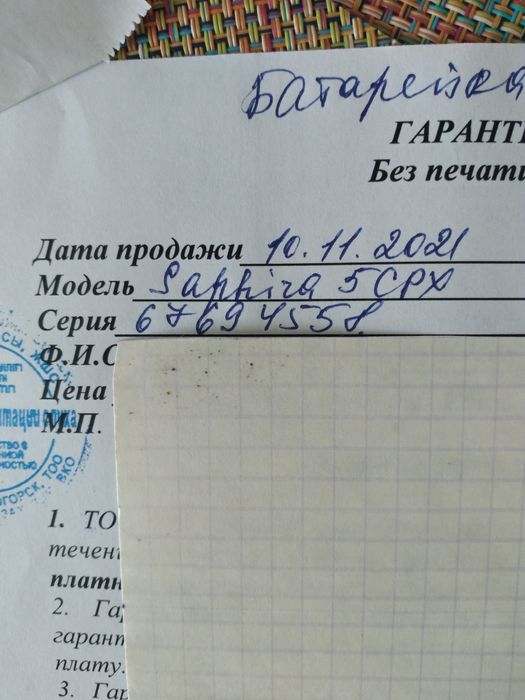 Батарейка
ГАРАНТИ
Без печати
Дата продажи 10.11.2021
Модель Sapphira 5 CPX
Серия 67694558
Ф.И.О
Цена
М.П.
ОГОРСК, ТОО
ВКО
1. ТО
течени
платн
2. Гар
гарант
плату.
3. Гар